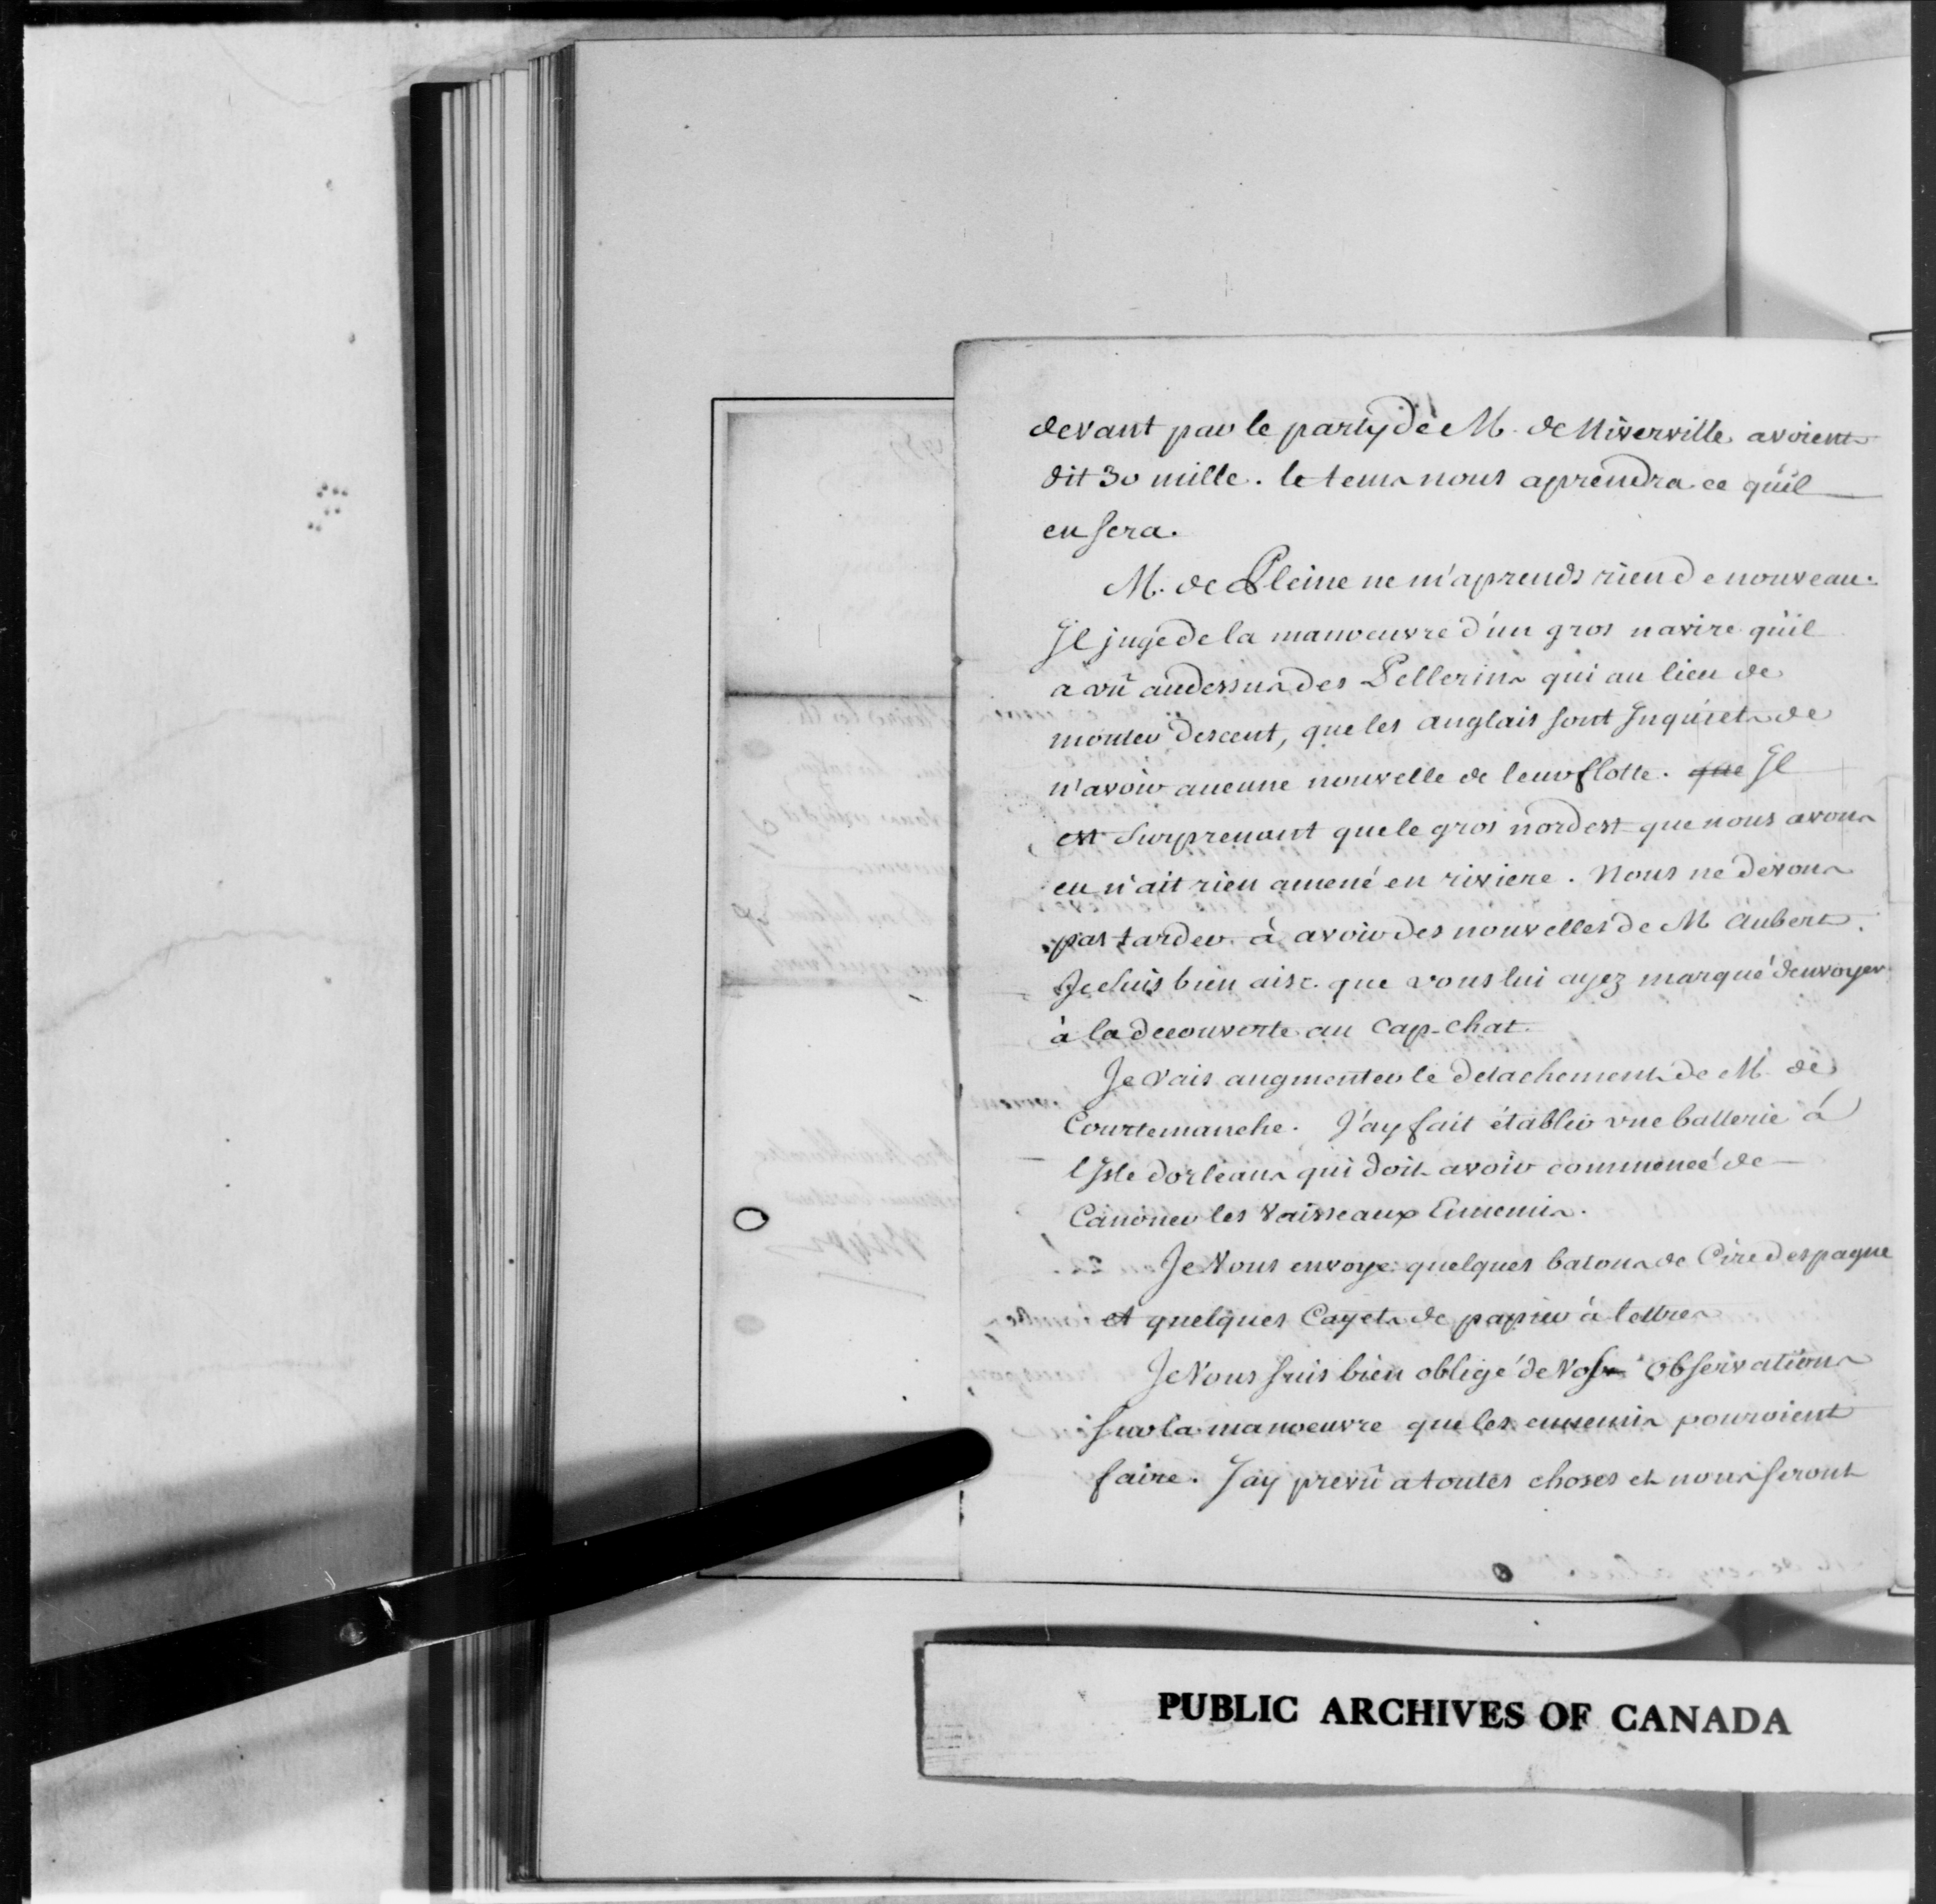 devant par le party de M. de Niverville avoient
dit 30 mille. le tems nous aprendra ce qu'il
en sera.
M. de Pleine ne m'aprends rien de nouveau.
Il juge de la manoeuvre d'un gros navire qu'il
a vû audessus des Pellerins qui au lieu de
monter descent, que les anglais sont Inquiets de
n'avoir aucune nouvelle de leur flotte. que Il
est surprenant que le gros nord est que nous avons
eu n'ait rien amené en riviere. Nous ne devons
pas tarder à avoir des nouvelles de M Aubert.
Je suis bien aise que vous lui ayez marqué d'envoyer
à la decouverte au Cap-chat.
Je vais augmenter le detachement de M de
Courtemanche. J'ay fait établir une batterie à
l'Isle dorleans qui doit avoir commencé de
Canoner les Vaisseaux Ennemis.
Je Vous envoye quelques batons de Cire despagne
et quelques Cayets de papier à lettres
Je Vous suis bien obligé de Vos observations
sur la manoeuvre que les ennemis pouroient
faire. J'ay prevû a toutes choses et nous seront
PUBLIC ARCHIVES OF CANADA